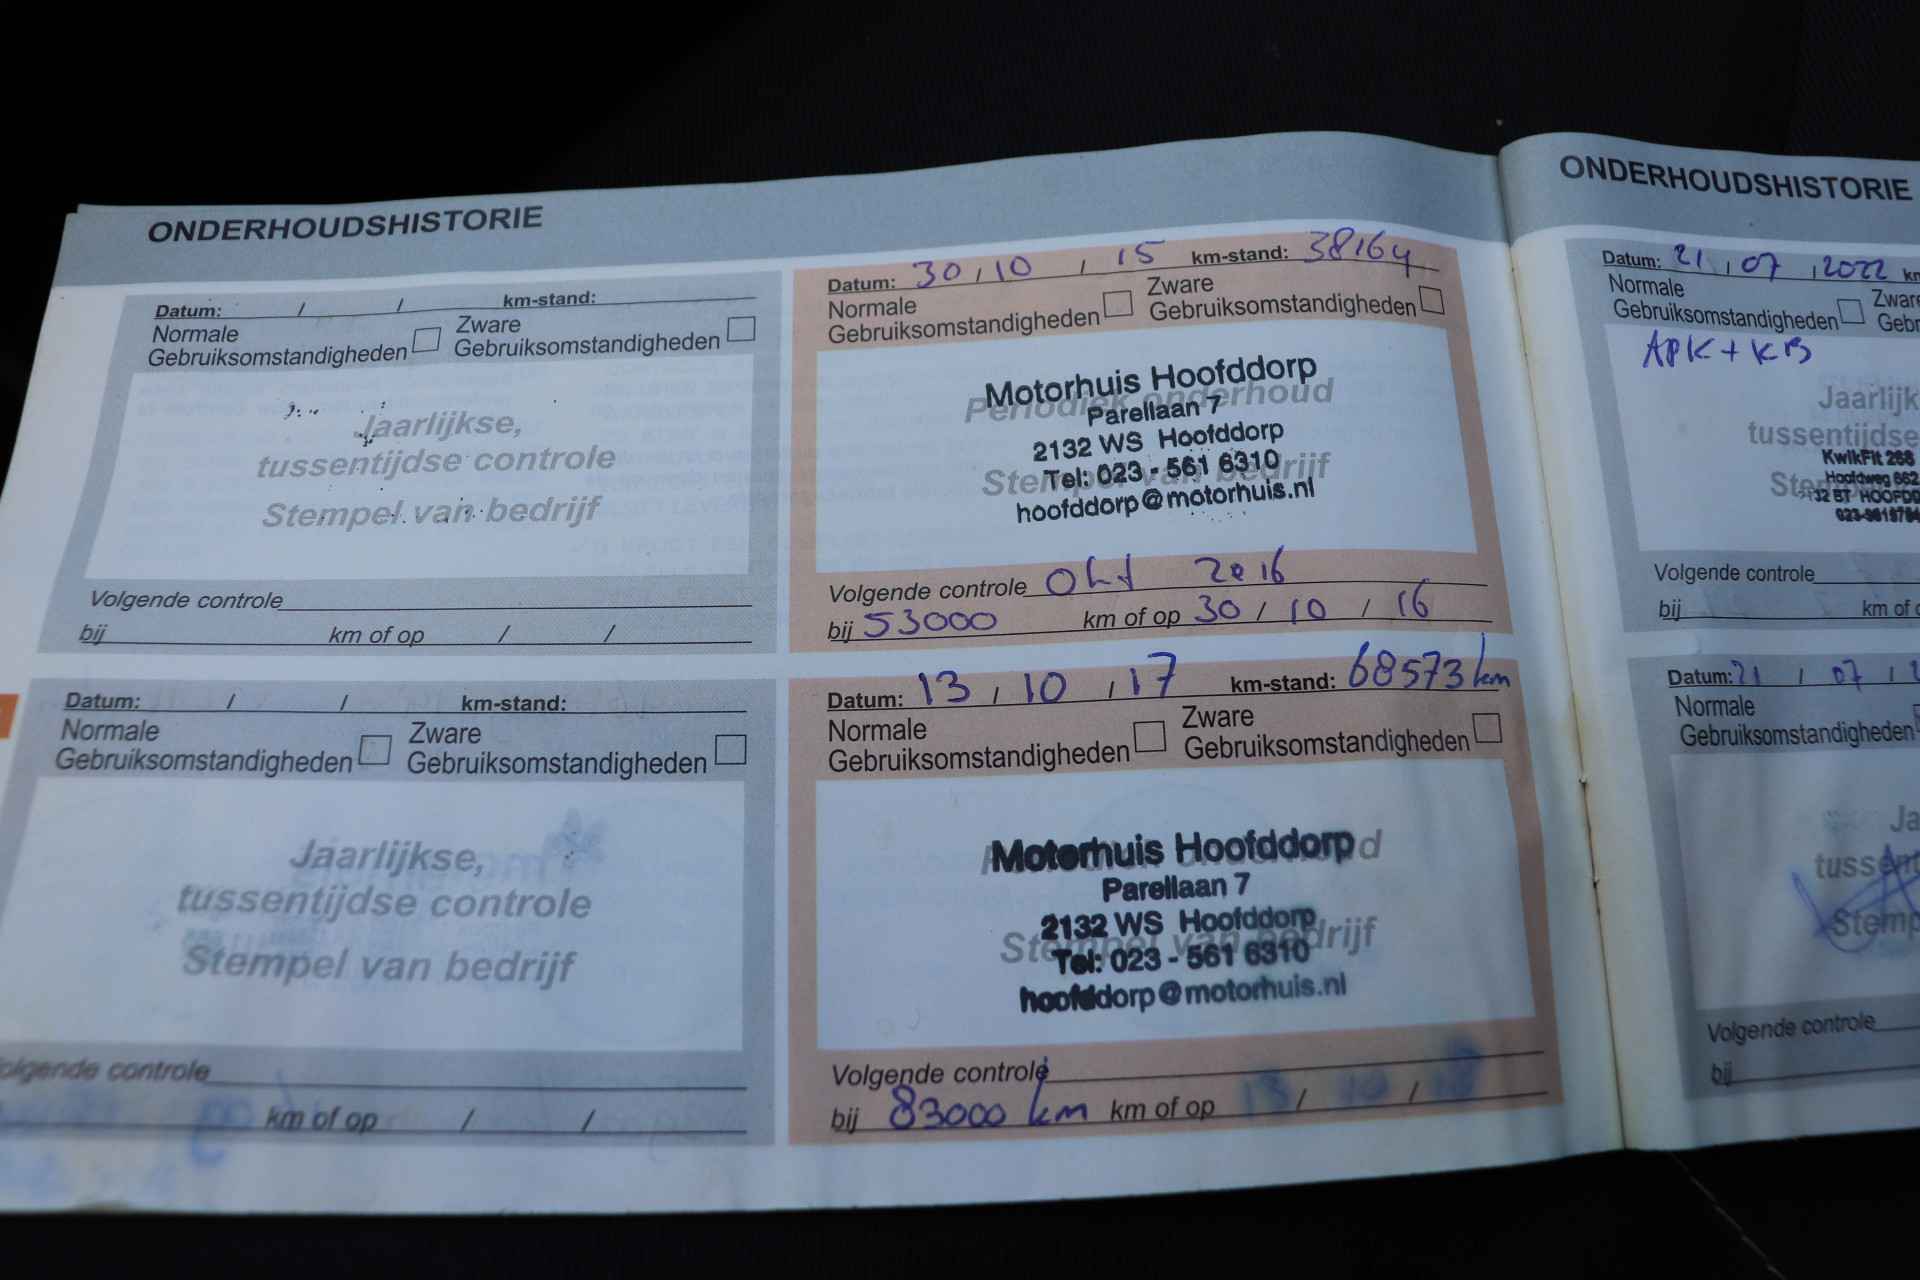 ONDERHOUDSHISTORIE
Datum: / / km-stand:
Normale
Gebruiksomstandigheden
Zware
Gebruiksomstandigheden
Jaarlijkse,
tussentijdse controle
Stempel van bedrijf
Volgende controle
bij km of op / /
Datum: 30 / 10 / 15 km-stand: 38164
Normale
Gebruiksomstandigheden
Zware
Gebruiksomstandigheden
Periodiek onderhoud
Stempel van bedrijf
Motorhuis Hoofddorp
Parellaan 7
2132 WS Hoofddorp
Tel: 023 - 561 6310
hoofddorp@motorhuis.nl
Volgende controle Okt 2016
bij 53000 km of op 30 / 10 / 16
Datum: / / km-stand:
Normale
Gebruiksomstandigheden
Zware
Gebruiksomstandigheden
Jaarlijkse,
tussentijdse controle
Stempel van bedrijf
Volgende controle
km of op / /
Datum: 13 / 10 / 17 km-stand: 68573 km
Normale
Gebruiksomstandigheden
Zware
Gebruiksomstandigheden
Stempel van bedrijf
Motorhuis Hoofddorp
Parellaan 7
2132 WS Hoofddorp
Tel: 023 - 561 6310
hoofddorp@motorhuis.nl
Volgende controle
bij 83000 km km of op 13 / 10 /
ONDERHOUDSHISTORIE
Datum: 21 / 07 / 2022 km
Normale
Gebruiksomstandigheden
Zware
Gebr
APK + KB
Jaarlijk
tussentijdse
KwikFit 288
Hoofdweg 662
32 BT HOOFDD
Volgende controle
bij km of o
Datum: 21 / 07 / 2
Normale
Gebruiksomstandigheden
Ja
tussent
Stemp
Volgende controle
bij